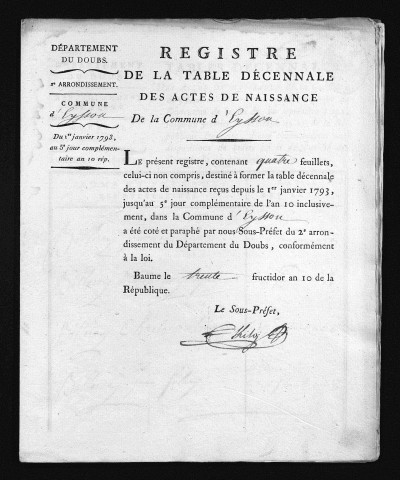 DÉPARTEMENT
DU DOUBS.
2e ARRONDISSEMENT.
COMMUNE
d'Eysson
Du 1er janvier 1793,
au 5e jour complémen-
taire an 10 rép.
REGISTRE
DE LA TABLE DÉCENNALE
DES ACTES DE NAISSANCE
De la Commune d'Eysson
LE présent registre, contenant quatre feuillets,
celui-ci non compris, destiné à former la table décennale
des actes de naissance reçus depuis le 1er janvier 1793,
jusqu'au 5e jour complémentaire de l'an 10 inclusive-
ment, dans la Commune d'Eysson
a été coté et paraphé par nous Sous-Préfet du 2e arron-
dissement du Département du Doubs, conformément
à la loi.
Baume le trente fructidor an 10 de la
République.
Le Sous-Préfet,